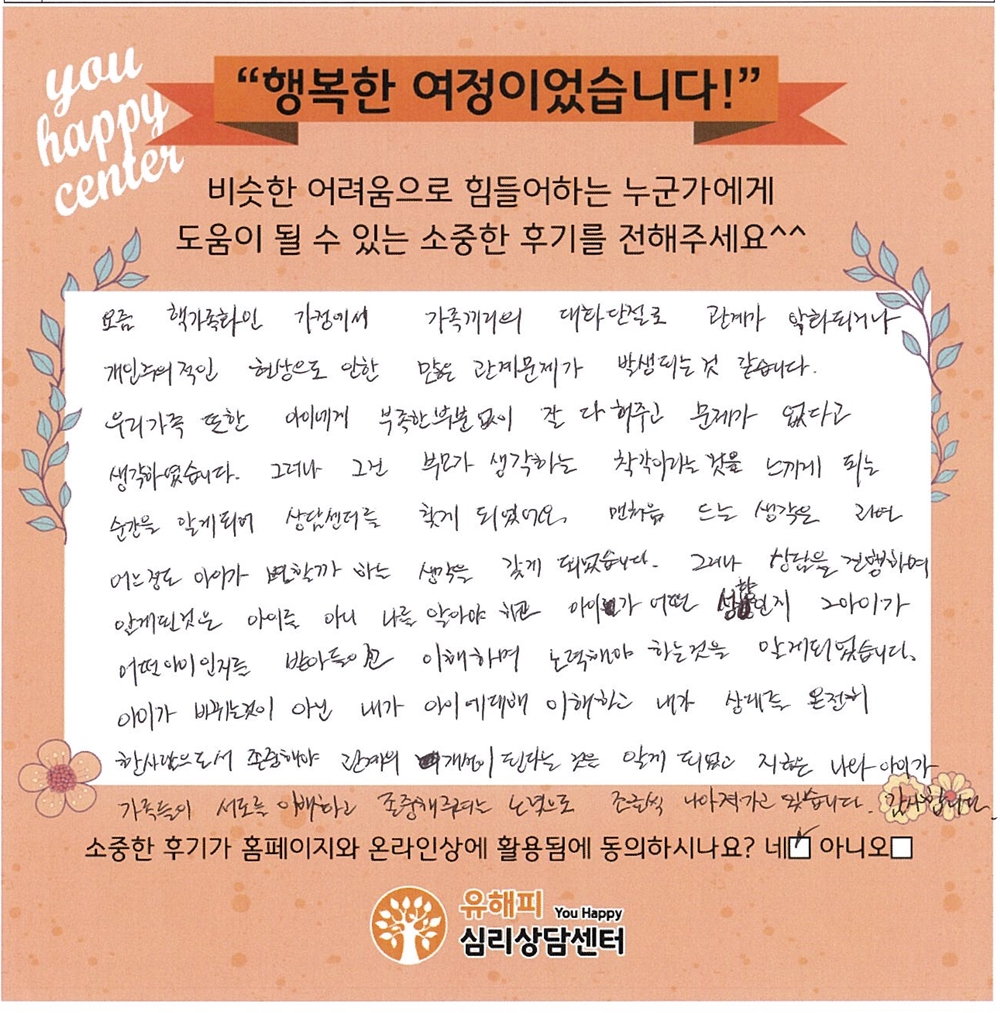 you
happy
center
“행복한 여정이었습니다!”
비슷한 어려움으로 힘들어하는 누군가에게
도움이 될 수 있는 소중한 후기를 전해주세요^^
요즘 핵가족화인 가정에서 가족끼리의 대화단절로 관계가 악화되거나
개인주의적인 현상으로 인한 많은 관계문제가 발생되는것 같습니다.
우리가족 또한 아이에게 부족한부분없이 잘 다해주고 문제가 없다고
생각하였습니다. 그러나 그건 부모가 생각하는 착각이라는것을 느끼게 되는
순간을 알게되어 상담센터를 찾게 되었어요. 맨처음 드는 생각은 과연
어느정도 아이가 변할까 하는 생각을 갖게 되었습니다. 그러나 상담을 진행하며
알게된것은 아이를 아니 나를 알아야 하고 아이가 어떤 성향인지 그아이가
어떤아이인지를 받아들이고 이해하며 노력해야 하는것을 알게되었습니다.
아이가 바뀌는것이 아닌 내가 아이에대해 이해하고 내가 상대를 온전히
한사람으로서 존중해야 관계의 개선이 된다는 것을 알게 되었고 지금은 나와 아이가
가족들이 서로를 이해하고 존중해주려는 노력으로 조금씩 나아져가고 있습니다. 감사합니다.
소중한 후기가 홈페이지와 온라인상에 활용됨에 동의하시나요? 네☑ 아니오□
유해피 You Happy
심리상담센터